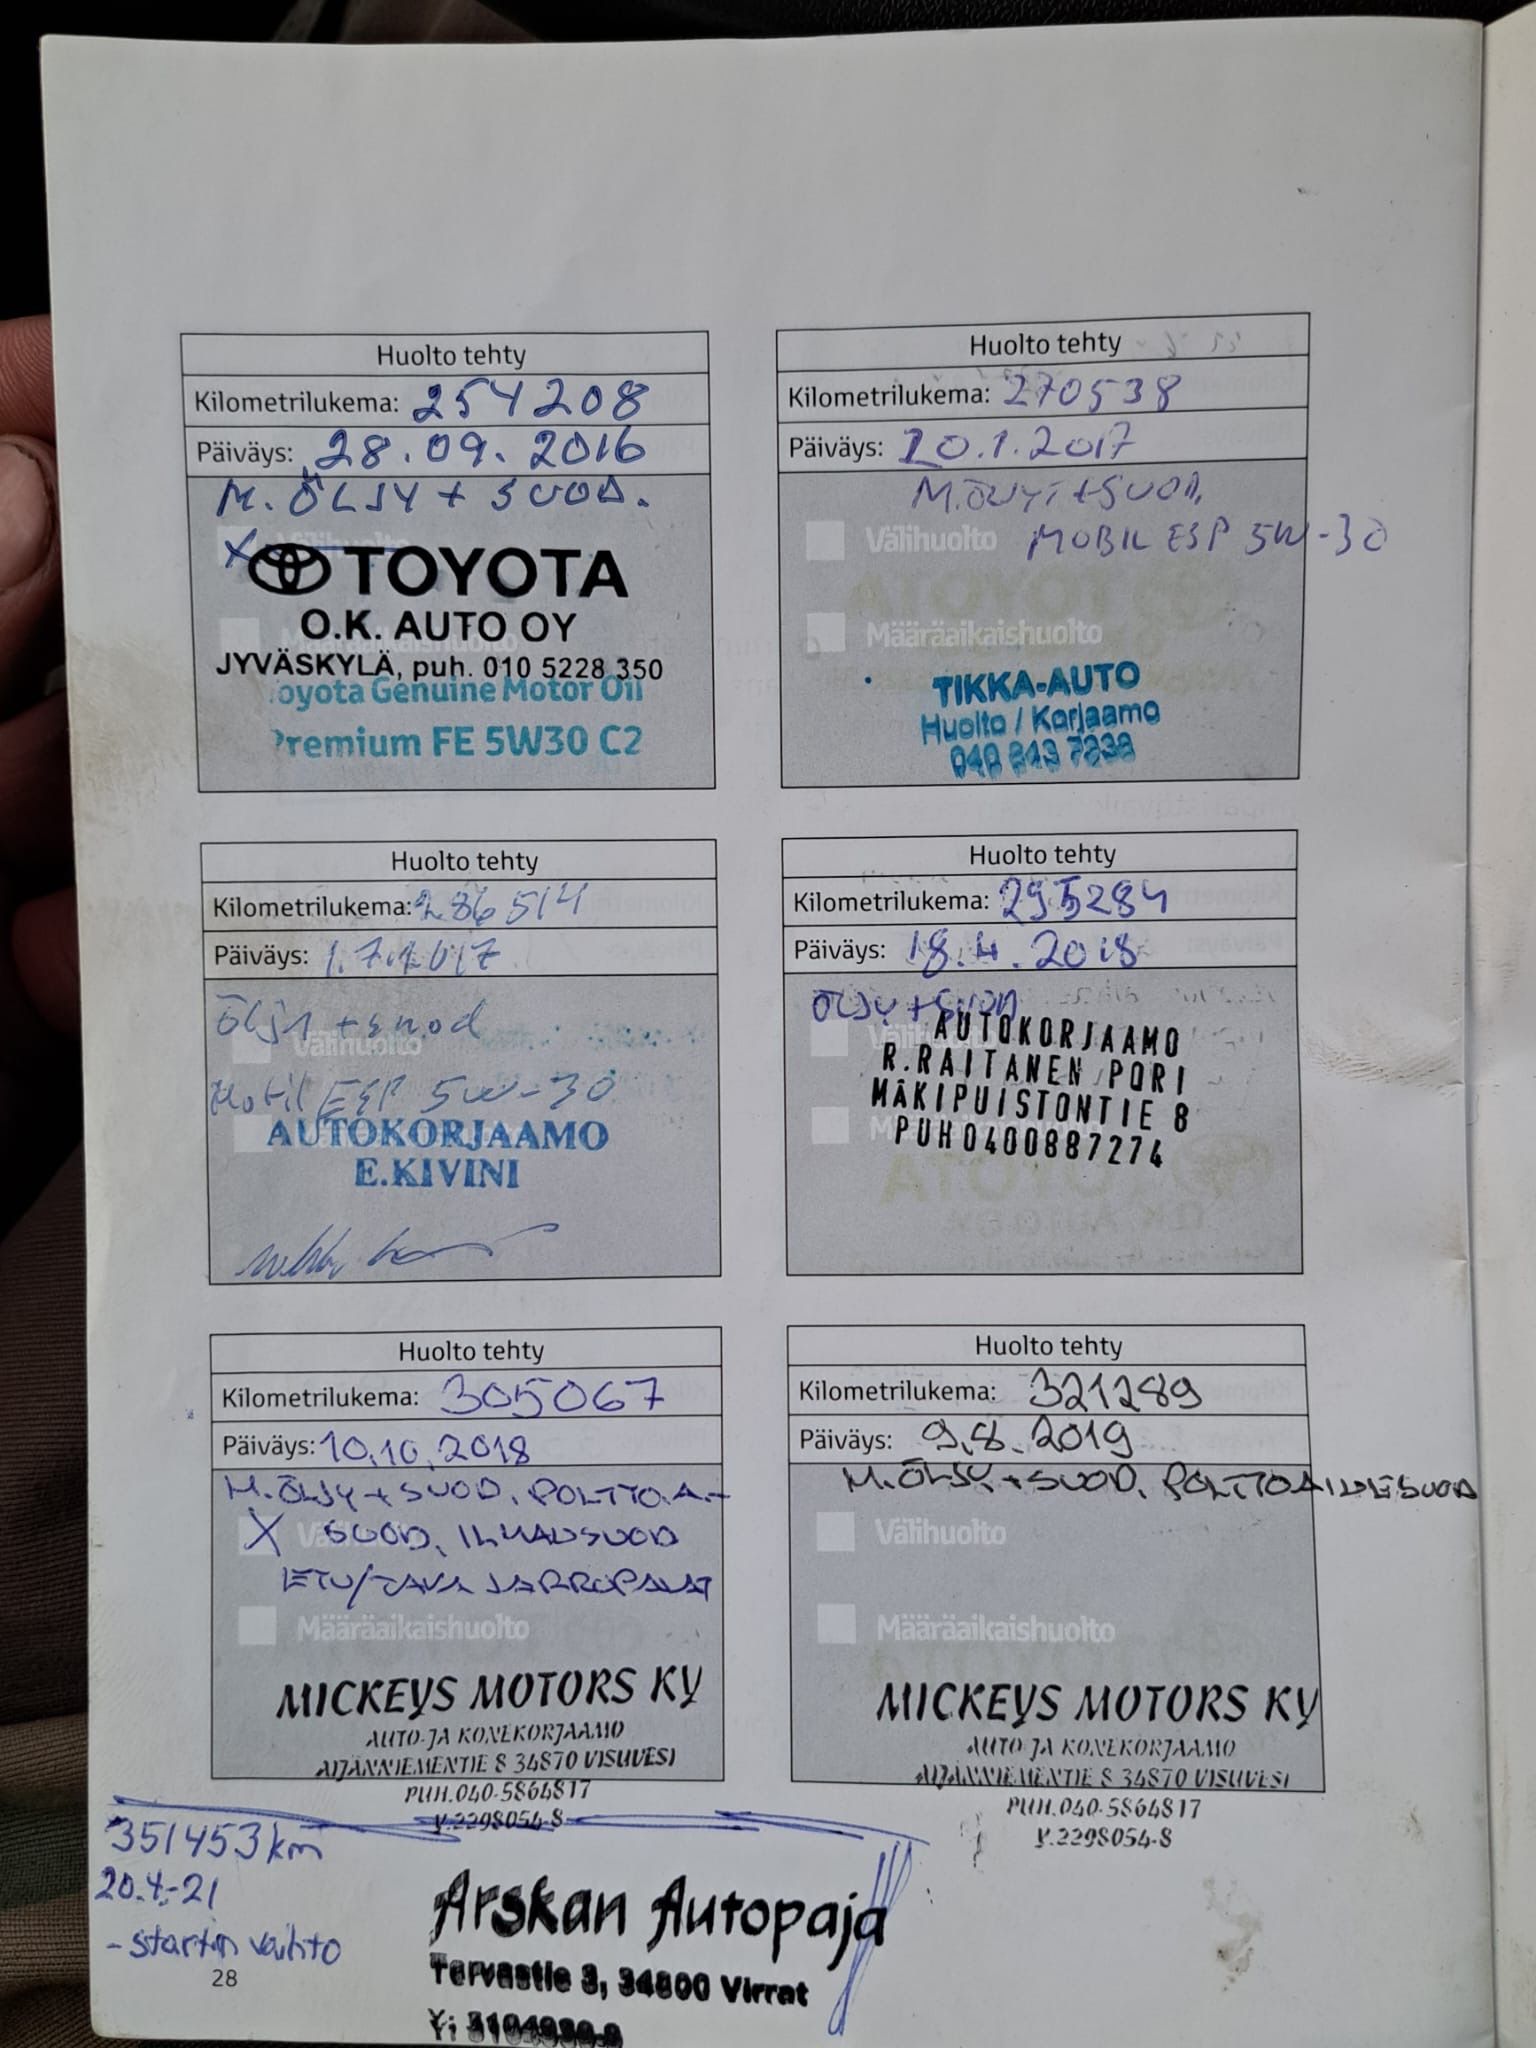 Huolto tehty
Kilometrilukema: 254208
Päiväys: 28.09.2016
M. ÖLJY + SUOD.
X Välihuolto
TOYOTA
O.K. AUTO OY
Määräaikaishuolto
JYVÄSKYLÄ, puh. 010 5228 350
Toyota Genuine Motor Oil
Premium FE 5W30 C2
Huolto tehty
Kilometrilukema: 270538
Päiväys: 20.1.2017
M.ÖLJYT+SUOD.
Välihuolto MOBIL ESP 5W-30
Määräaikaishuolto
TIKKA-AUTO
Huolto / Korjaamo
Huolto tehty
Kilometrilukema: 286514
Päiväys: 1.7.2017
Öljyt + suod
Välihuolto
Mobil ESP 5W-30
AUTOKORJAAMO
E.KIVINI
Huolto tehty
Kilometrilukema: 295284
Päiväys: 18.4.2018
ÖLJY + SUOD
AUTOKORJAAMO
R.RAITANEN PORI
MÄKIPUISTONTIE 8
PUH0400887274
Huolto tehty
Kilometrilukema: 305067
Päiväys: 10.10.2018
M.ÖLJY + SUOD, POLTTO.A.-
X Välihuolto SUOD, ILMANSUOD
ETU/TAKA JARRUPALAT
Määräaikaishuolto
MICKEYS MOTORS KY
AUTO-JA KONEKORJAAMO
ÄIJÄNNIEMENTIE 8 34870 VISUVESI
PUH.040-5864817
Y.2298054-8
Huolto tehty
Kilometrilukema: 321289
Päiväys: 9.8.2019
M.ÖLJY + SUOD. POLTTOAINESUOD
Välihuolto
Määräaikaishuolto
MICKEYS MOTORS KY
AUTO-JA KONEKORJAAMO
ÄIJÄNNIEMENTIE 8 34870 VISUVESI
PUH.040-5864817
Y.2298054-8
351453km
20.4.-21
- startin vaihto
Arskan Autopaja
Tervastie 3, 34800 Virrat
28